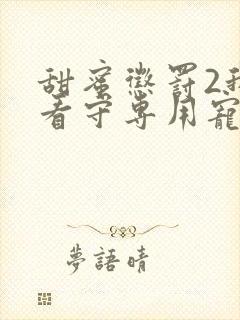 甜蜜懲罰2我
看守專用寵
夢語晴